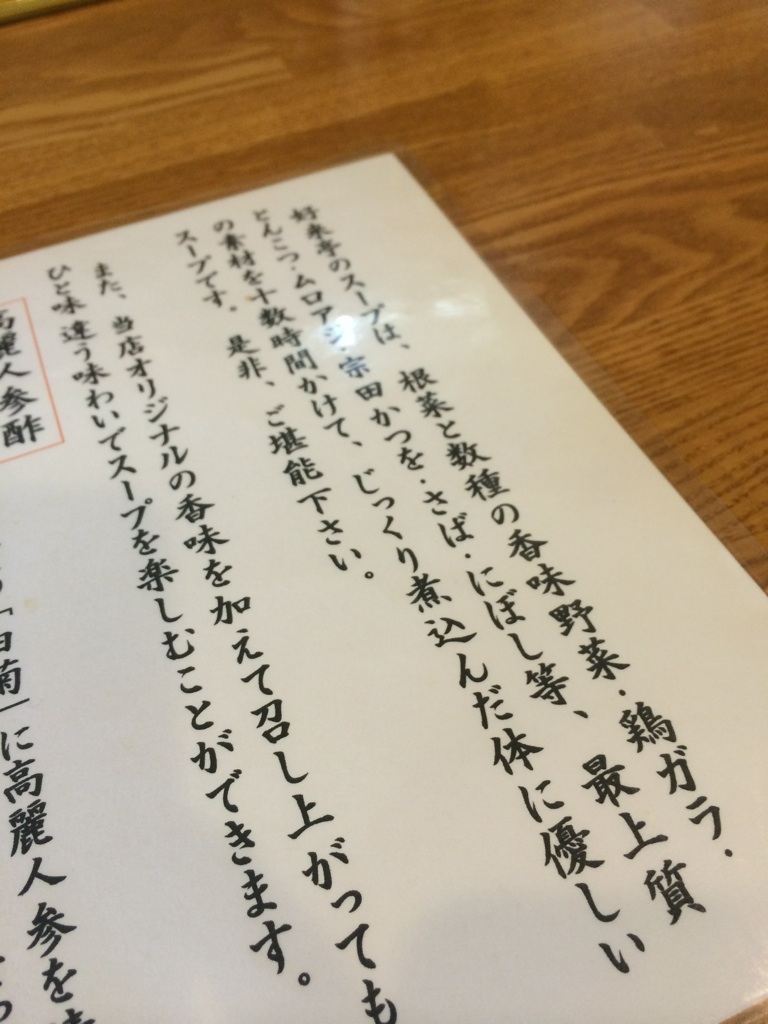 好来亭のスープは、根菜と数種の香味野菜・鶏ガラ・
とんこつ・ムロアジ・宗田かつを・さば・にぼし等、最上質
の素材を十数時間かけて、じっくり煮込んだ体に優しい
スープです。是非、ご堪能下さい。
また、当店オリジナルの香味を加えて召し上がっても
ひと味違う味わいでスープを楽しむことができます。
高麗人参酢
「白菊」に高麗人参を